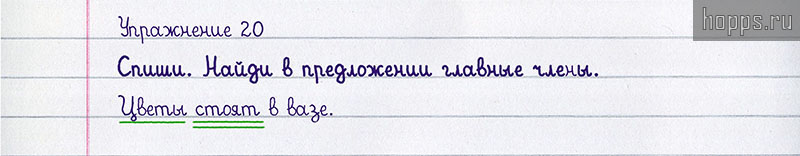 hopps.ru
Упражнение 20
Спиши. Найди в предложении главные члены.
Цветы стоят в вазе.